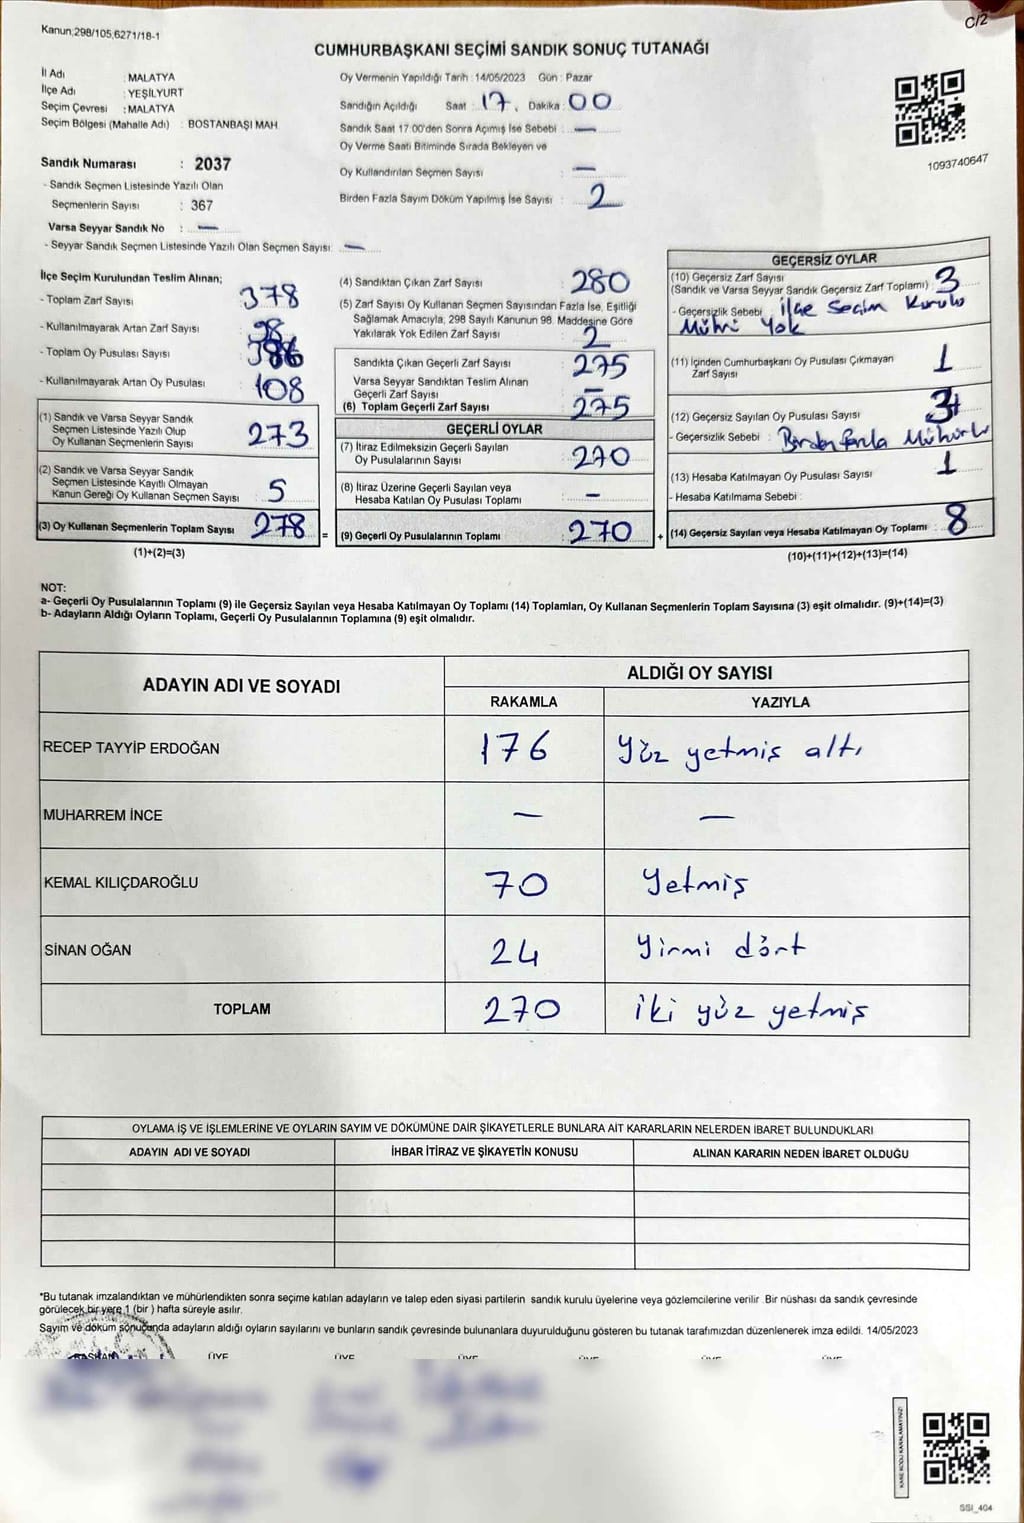 Kanun;298/105,6271/18-1
C/2
CUMHURBAŞKANI SEÇİMİ SANDIK SONUÇ TUTANAĞI
İl Adı : MALATYA
İlçe Adı : YEŞİLYURT
Seçim Çevresi : MALATYA
Seçim Bölgesi (Mahalle Adı) : BOSTANBAŞI MAH
Sandık Numarası : 2037
- Sandık Seçmen Listesinde Yazılı Olan
Seçmenlerin Sayısı : 367
Varsa Seyyar Sandık No : —
- Seyyar Sandık Seçmen Listesinde Yazılı Olan Seçmen Sayısı: —
Oy Vermenin Yapıldığı Tarih : 14/05/2023 Gün : Pazar
Sandığın Açıldığı Saat : 17, Dakika : 00
Sandık Saat 17:00'den Sonra Açımış İse Sebebi : —
Oy Verme Saati Bitiminde Sırada Bekleyen ve
Oy Kullandırılan Seçmen Sayısı : —
Birden Fazla Sayım Döküm Yapılmış İse Sayısı : 2
1093740647
İlçe Seçim Kurulundan Teslim Alınan;
- Toplam Zarf Sayısı 378
- Kullanılmayarak Artan Zarf Sayısı 98
- Toplam Oy Pusulası Sayısı
- Kullanılmayarak Artan Oy Pusulası 108
(1) Sandık ve Varsa Seyyar Sandık
Seçmen Listesinde Yazılı Olup
Oy Kullanan Seçmenlerin Sayısı 273
(2) Sandık ve Varsa Seyyar Sandık
Seçmen Listesinde Kayıtlı Olmayan
Kanun Gereği Oy Kullanan Seçmen Sayısı : 5
(3) Oy Kullanan Seçmenlerin Toplam Sayısı 278 =
(1)+(2)=(3)
(4) Sandıktan Çıkan Zarf Sayısı : 280
(5) Zarf Sayısı Oy Kullanan Seçmen Sayısından Fazla İse, Eşitliği
Sağlamak Amacıyla, 298 Sayılı Kanunun 98. Maddesine Göre
Yakılarak Yok Edilen Zarf Sayısı : 2
Sandıkta Çıkan Geçerli Zarf Sayısı : 275
Varsa Seyyar Sandıktan Teslim Alınan
Geçerli Zarf Sayısı : —
(6) Toplam Geçerli Zarf Sayısı : 275
GEÇERLİ OYLAR
(7) İtiraz Edilmeksizin Geçerli Sayılan
Oy Pusulalarının Sayısı : 270
(8) İtiraz Üzerine Geçerli Sayılan veya
Hesaba Katılan Oy Pusulası Toplamı : —
(9) Geçerli Oy Pusulalarının Toplamı : 270 +
GEÇERSİZ OYLAR
(10) Geçersiz Zarf Sayısı
(Sandık ve Varsa Seyyar Sandık Geçersiz Zarf Toplamı) : 3
- Geçersizlik Sebebi : İlçe Seçim Kurulu
Mührü Yok
(11) İçinden Cumhurbaşkanı Oy Pusulası Çıkmayan
Zarf Sayısı : 1
(12) Geçersiz Sayılan Oy Pusulası Sayısı : 3
- Geçersizlik Sebebi : Birden fazla Mühürlü
(13) Hesaba Katılmayan Oy Pusulası Sayısı : 1
- Hesaba Katılmama Sebebi :
(14) Geçersiz Sayılan veya Hesaba Katılmayan Oy Toplamı : 8
(10)+(11)+(12)+(13)=(14)
NOT:
a- Geçerli Oy Pusulalarının Toplamı (9) ile Geçersiz Sayılan veya Hesaba Katılmayan Oy Toplamı (14) Toplamları, Oy Kullanan Seçmenlerin Toplam Sayısına (3) eşit olmalıdır. (9)+(14)=(3)
b- Adayların Aldığı Oyların Toplamı, Geçerli Oy Pusulalarının Toplamına (9) eşit olmalıdır.
ADAYIN ADI VE SOYADI ALDIĞI OY SAYISI
RAKAMLA YAZIYLA
RECEP TAYYİP ERDOĞAN 176 Yüz yetmiş altı
MUHARREM İNCE — —
KEMAL KILIÇDAROĞLU 70 Yetmiş
SİNAN OĞAN 24 Yirmi dört
TOPLAM 270 iki yüz yetmiş
OYLAMA İŞ VE İŞLEMLERİNE VE OYLARIN SAYIM VE DÖKÜMÜNE DAİR ŞİKAYETLERLE BUNLARA AİT KARARLARIN NELERDEN İBARET BULUNDUKLARI
ADAYIN ADI VE SOYADI İHBAR İTİRAZ VE ŞİKAYETİN KONUSU ALINAN KARARIN NEDEN İBARET OLDUĞU
*Bu tutanak imzalandıktan ve mühürlendikten sonra seçime katılan adayların ve talep eden siyasi partilerin sandık kurulu üyelerine veya gözlemcilerine verilir. Bir nüshası da sandık çevresinde
görülecek bir yere 1 (bir) hafta süreyle asılır.
Sayım ve döküm sonucunda adayların aldığı oyların sayılarını ve bunların sandık çevresinde bulunanlara duyurulduğunu gösteren bu tutanak tarafımızdan düzenlenerek imza edildi. 14/05/2023
BAŞKAN ÜYE ÜYE ÜYE ÜYE ÜYE ÜYE
SSI_404